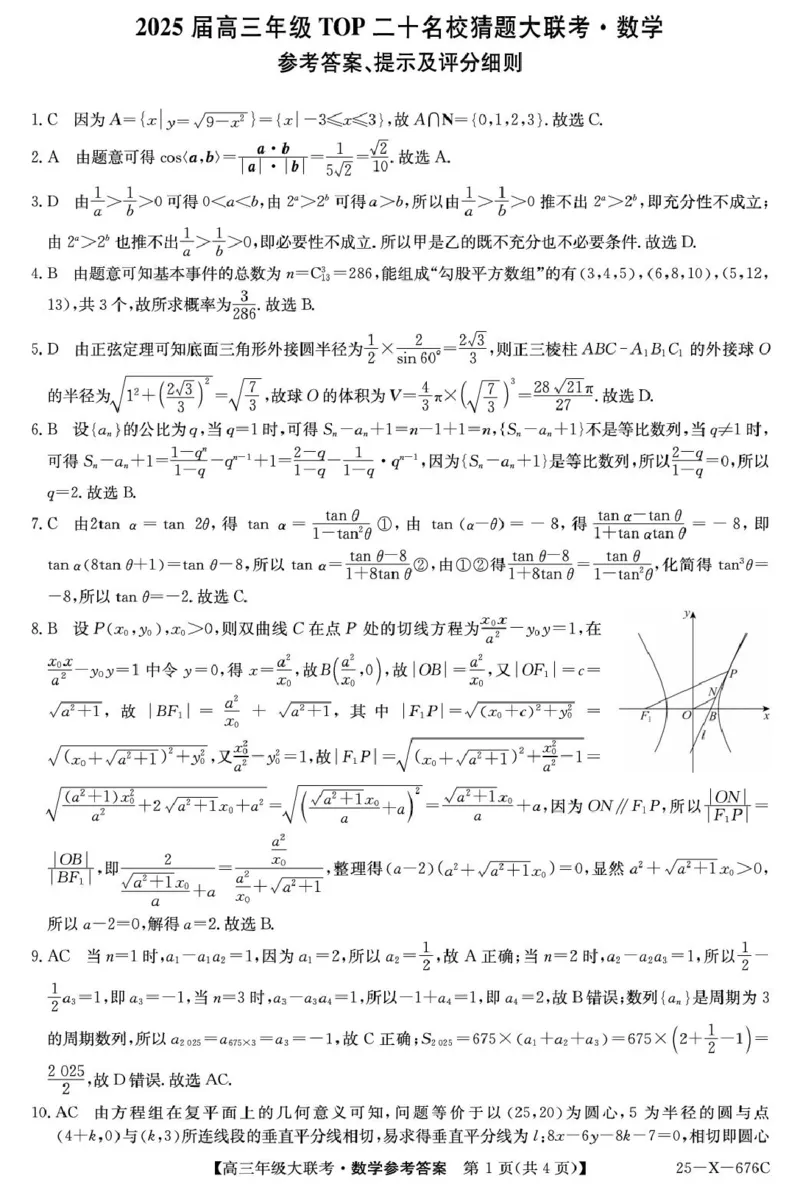 2025 届高三年级 TOP 二十名校猜题大联考·数学
参考答案、提示及评分细则
1. C 因为 A={x|y=√(9-x²)}={x|-3≤x≤3},故 A∩N={0,1,2,3}.故选 C.
2. A 由题意可得 cos⟨a,b⟩=a·b/(|a|·|b|)=1/(5√2)=√2/10.故选 A.
3. D 由1/a>1/b>0 可得 0<a<b,由 2ᵃ>2ᵇ 可得 a>b,所以由1/a>1/b>0 推不出 2ᵃ>2ᵇ,即充分性不成立;
由 2ᵃ>2ᵇ 也推不出1/a>1/b>0,即必要性不成立.所以甲是乙的既不充分也不必要条件.故选 D.
4. B 由题意可知基本事件的总数为 n=C³₁₃=286,能组成“勾股平方数组”的有(3,4,5),(6,8,10),(5,12,
13),共 3 个,故所求概率为3/286.故选 B.
5. D 由正弦定理可知底面三角形外接圆半径为1/2×2/sin 60°=2√3/3,则正三棱柱 ABC-A₁B₁C₁ 的外接球 O
的半径为√(1²+(2√3/3)²)=√(7/3),故球 O 的体积为 V=4/3π×(√(7/3))³=28√21π/27.故选 D.
6. B 设{aₙ}的公比为 q,当 q=1 时,可得 Sₙ-aₙ+1=n-1+1=n,{Sₙ-aₙ+1}不是等比数列,当 q≠1 时,
可得 Sₙ-aₙ+1=(1-qⁿ)/(1-q)-qⁿ⁻¹+1=(2-q)/(1-q)-1/(1-q)·qⁿ⁻¹,因为{Sₙ-aₙ+1}是等比数列,所以(2-q)/(1-q)=0,所以
q=2.故选 B.
7. C 由2tan α=tan 2θ,得 tan α=tan θ/(1-tan²θ)①,由 tan(α-θ)=-8,得(tan α-tan θ)/(1+tan αtan θ)=-8,即
tan α(8tan θ+1)=tan θ-8,所以 tan α=(tan θ-8)/(1+8tan θ)②,由①②得(tan θ-8)/(1+8tan θ)=tan θ/(1-tan²θ),化简得 tan³θ=
-8,所以 tan θ=-2.故选 C.
8. B 设 P(x₀,y₀),x₀>0,则双曲线 C 在点 P 处的切线方程为x₀x/a²-y₀y=1,在
x₀x/a²-y₀y=1 中令 y=0,得 x=a²/x₀,故B(a²/x₀,0),故|OB|=a²/x₀,又|OF₁|=c=
√(a²+1),故 |BF₁|=a²/x₀+√(a²+1),其中 |F₁P|=√((x₀+c)²+y₀²)=
√((x₀+√(a²+1))²+y₀²),又x₀²/a²-y₀²=1,故|F₁P|=√((x₀+√(a²+1))²+x₀²/a²-1)=
y
P
N
F₁ O B x
l
√((a²+1)x₀²/a²+2√(a²+1)x₀+a²)=√((√(a²+1)x₀/a+a)²)=√(a²+1)x₀/a+a,因为 ON∥F₁P,所以|ON|/|F₁P|=
|OB|/|BF₁|,即2/(√(a²+1)x₀/a+a)=(a²/x₀)/(a²/x₀+√(a²+1)),整理得(a-2)(a²+√(a²+1)x₀)=0,显然 a²+√(a²+1)x₀>0,
所以 a-2=0,解得 a=2.故选 B.
9. AC 当 n=1 时,a₁-a₁a₂=1,因为 a₁=2,所以 a₂=1/2,故 A 正确;当 n=2 时,a₂-a₂a₃=1,所以1/2-
1/2a₃=1,即 a₃=-1,当 n=3 时,a₃-a₃a₄=1,所以-1+a₄=1,即 a₄=2,故 B 错误;数列{aₙ}是周期为 3
的周期数列,所以 a₂₀₂₅=a₆₇₅ₓ₃=a₃=-1,故 C 正确;S₂₀₂₅=675×(a₁+a₂+a₃)=675×(2+1/2-1)=
2 025/2,故 D 错误.故选 AC.
10. AC 由方程组在复平面上的几何意义可知,问题等价于以(25,20)为圆心,5 为半径的圆与点
(4+k,0)与(k,3)所连线段的垂直平分线相切,易求得垂直平分线为 l:8x-6y-8k-7=0,相切即圆心
【高三年级大联考·数学参考答案 第 1 页(共 4 页)】 25-X-676C